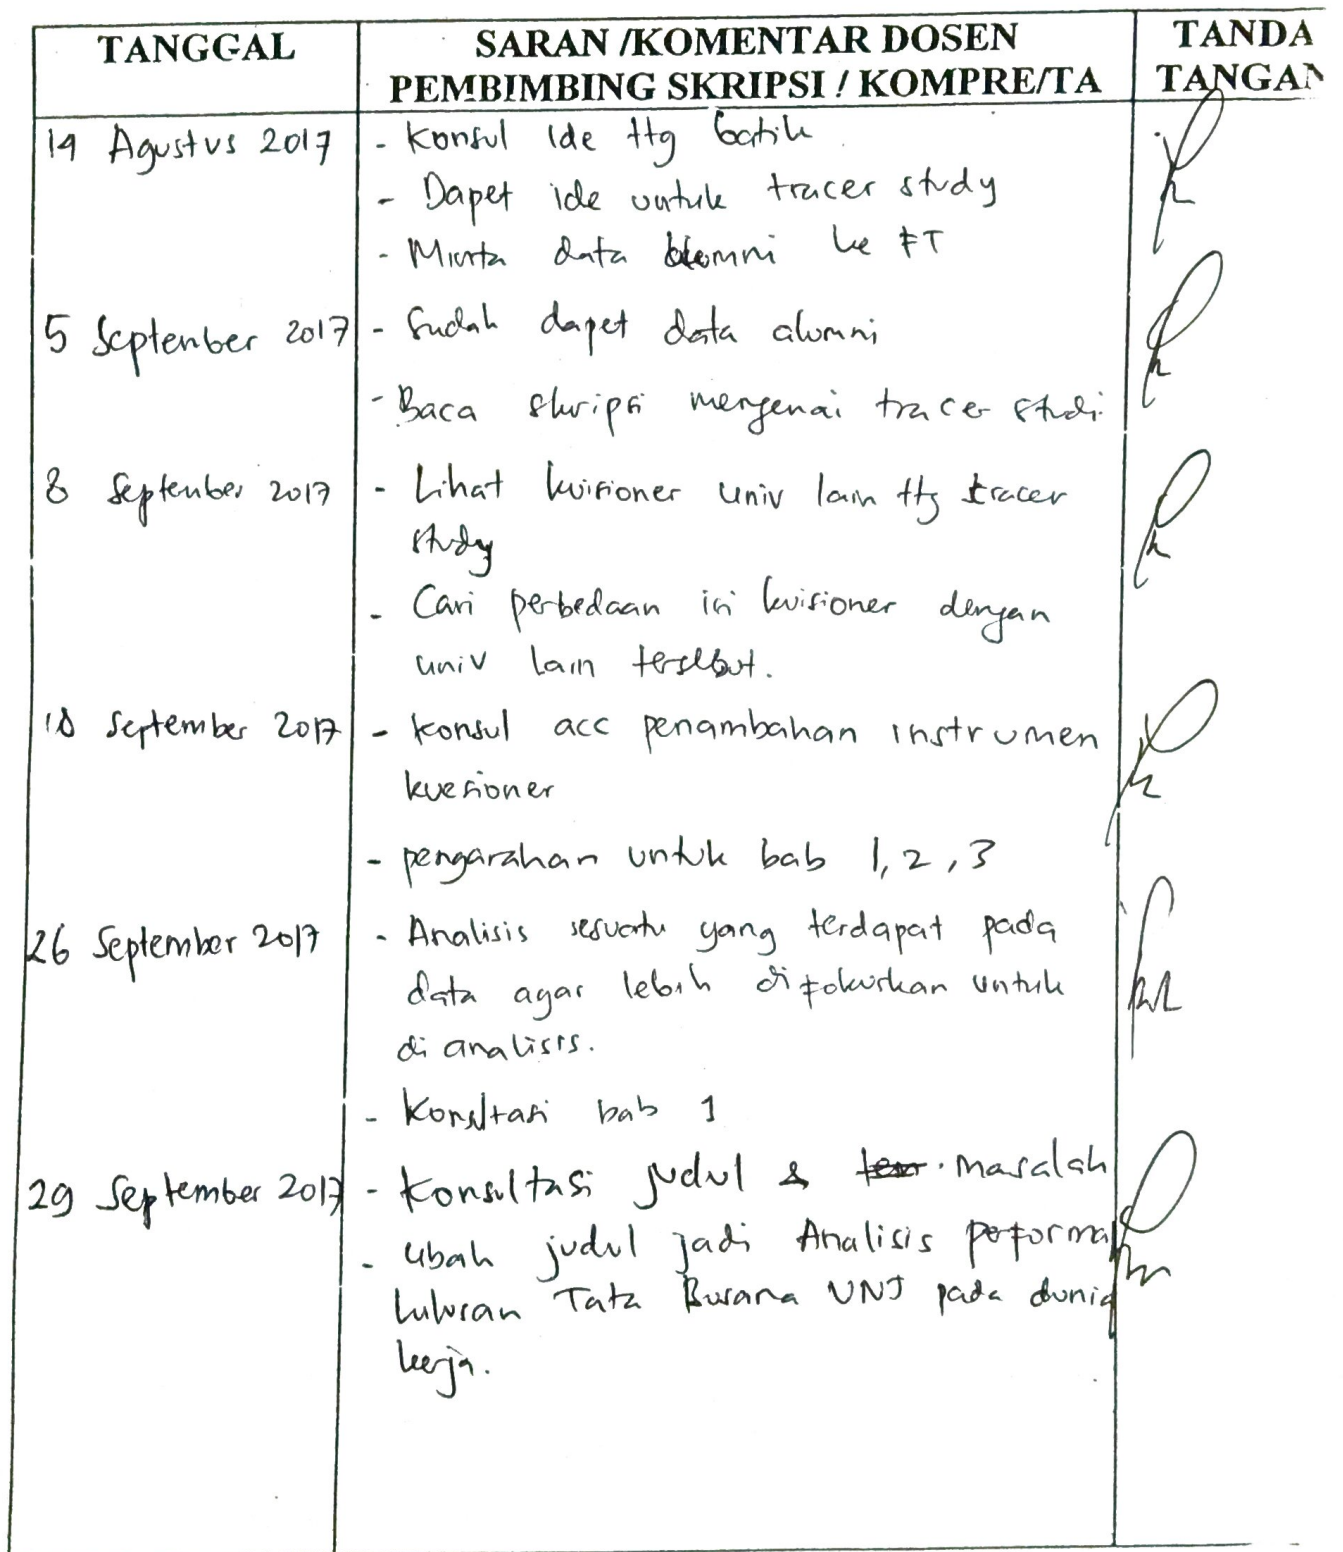 TANGGAL
SARAN /KOMENTAR DOSEN
PEMBIMBING SKRIPSI / KOMPRE/TA
TANDA
TANGAN
14 Agustus 2017
- Konsul Ide ttg batik
- Dapet ide untuk tracer study
- Minta data alumni ke FT
5 September 2017
- Sudah dapet data alumni
- Baca skripsi mengenai tracer studi
8 September 2017
- Lihat kuisioner univ lain ttg tracer
study
- Cari perbedaan isi kuisioner dengan
univ lain tersebut.
18 September 2017
- konsul acc penambahan instrumen
kuesioner
- pengarahan untuk bab 1, 2, 3
26 September 2017
- Analisis sesuatu yang terdapat pada
data agar lebih difokuskan untuk
di analisis.
- Konsltasi bab 1
29 September 2017
- Konsultasi judul & masalah
- Ubah judul jadi Analisis performa
lulusan Tata Busana UNJ pada dunia
kerja.